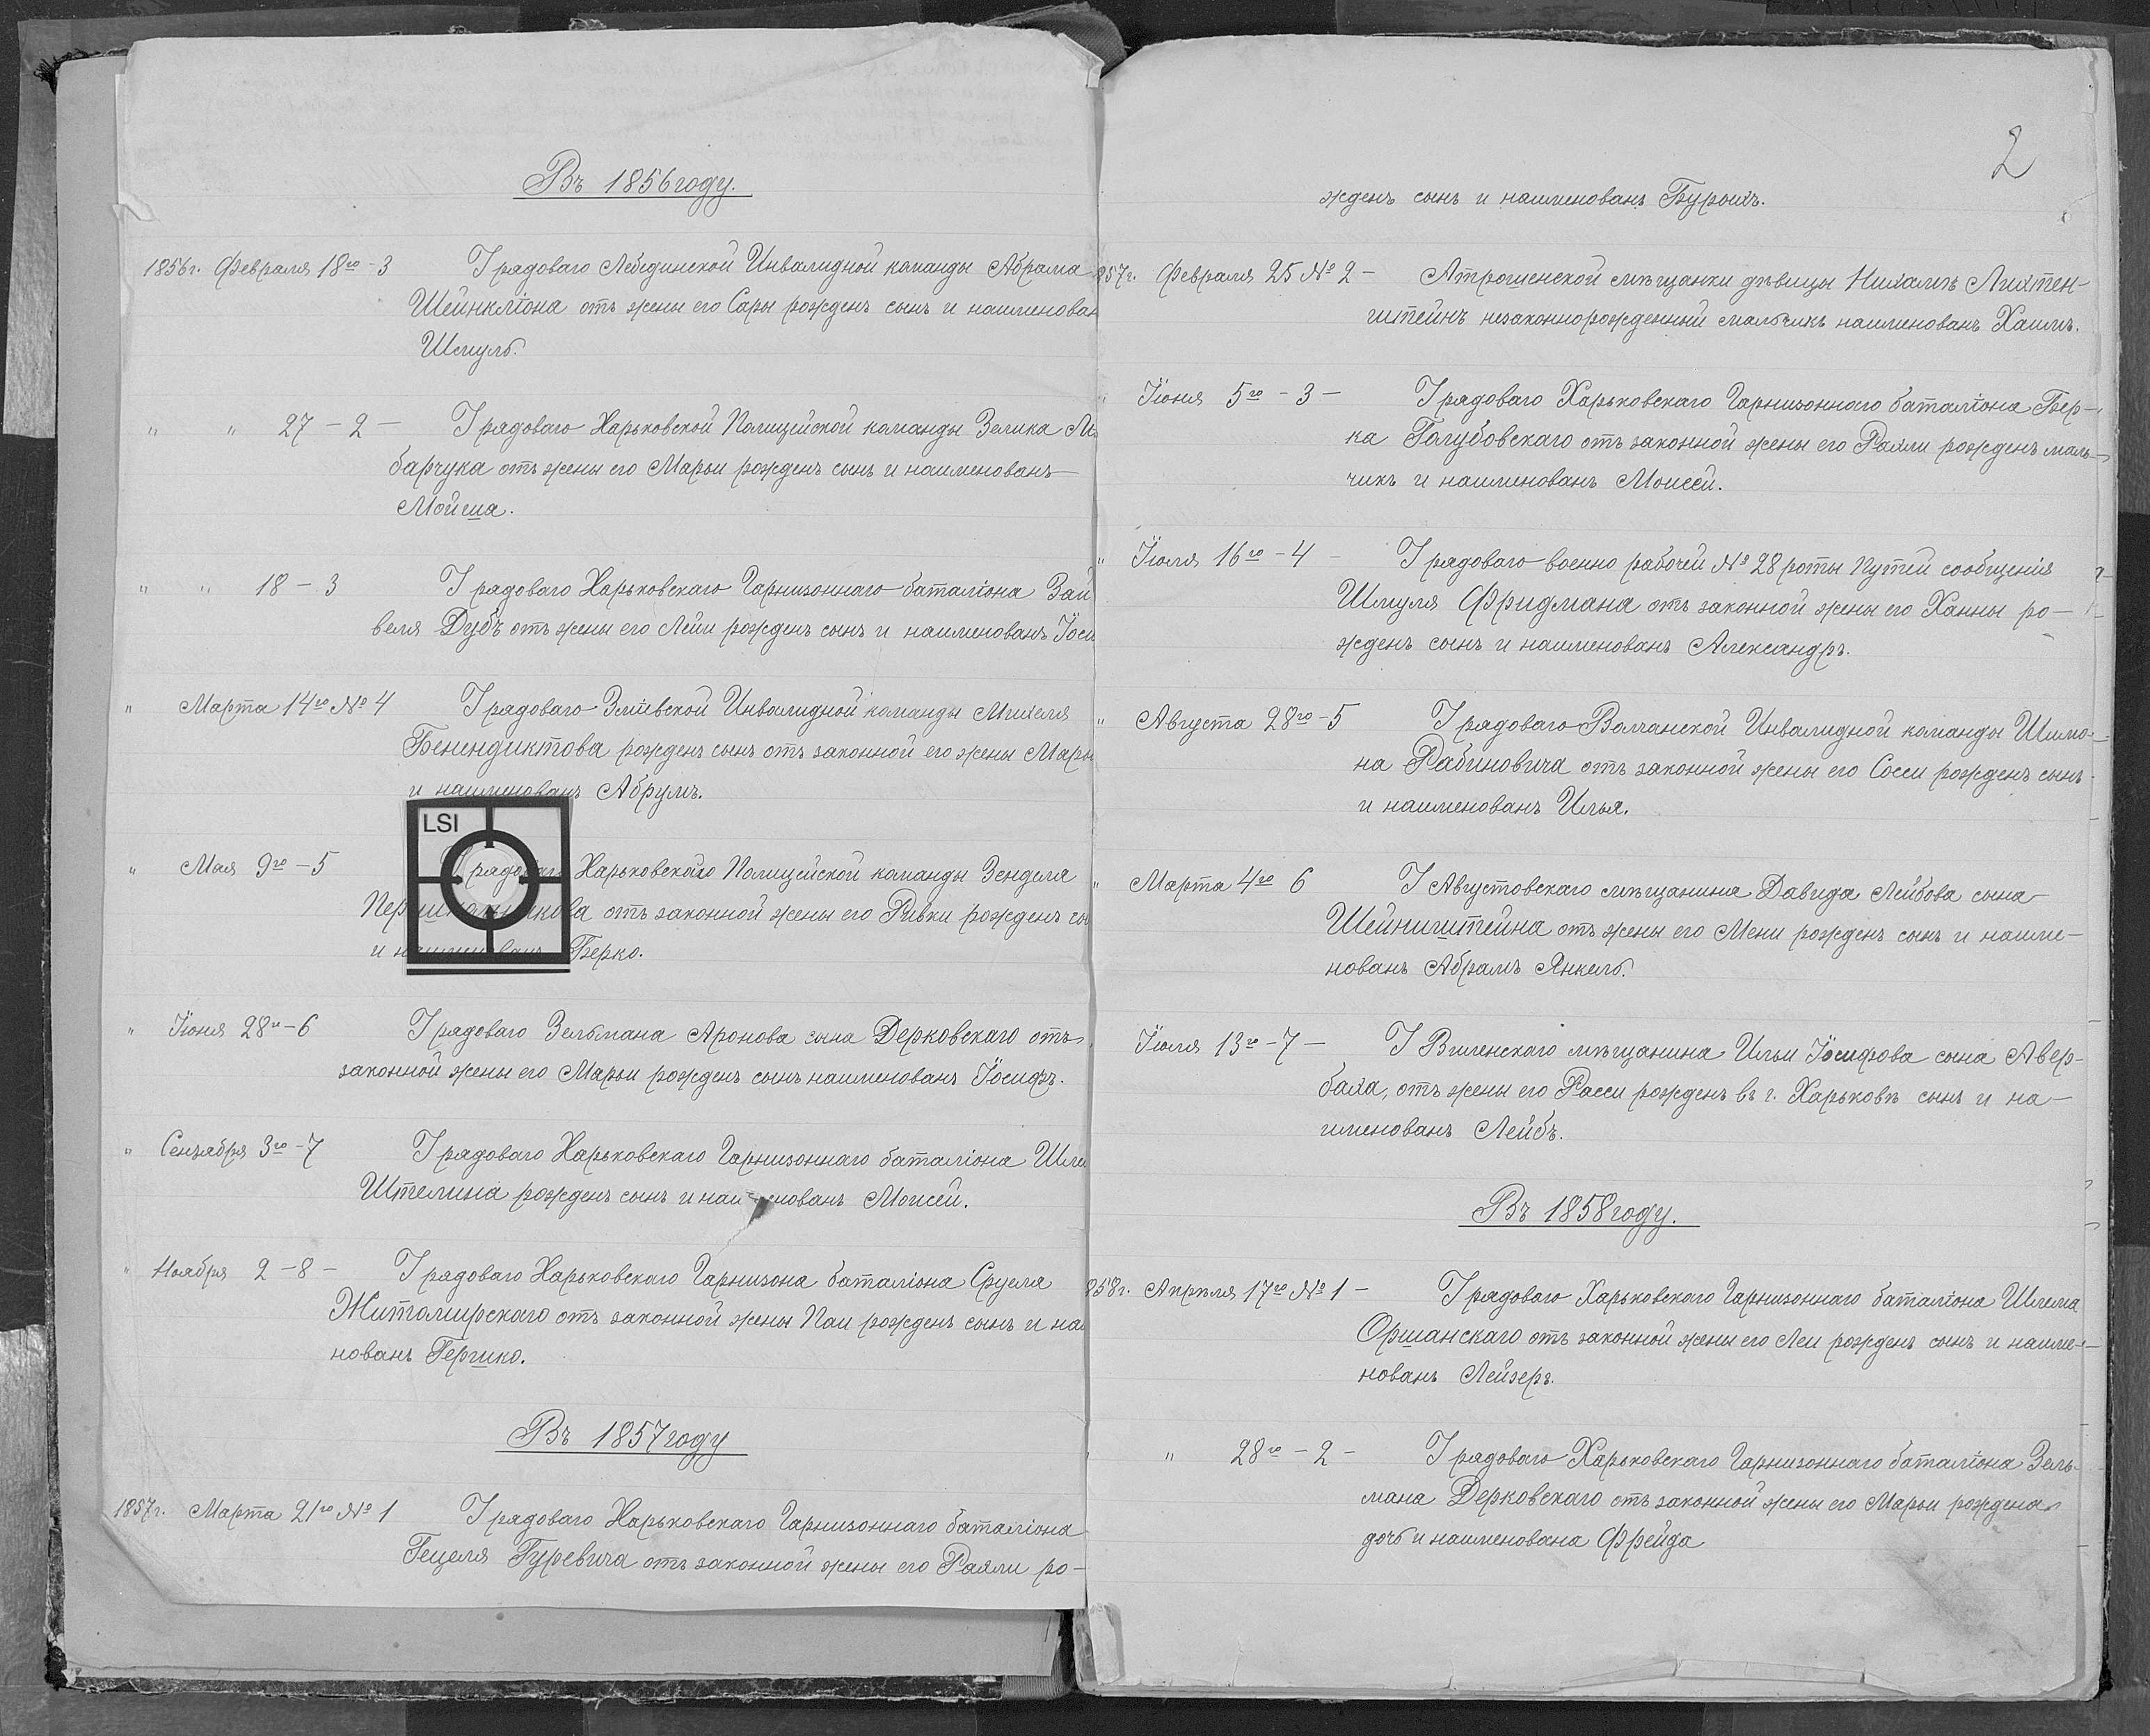 Въ 1856 году.
1856г. Февраля 18го - 3 У рядоваго Лебединской Инвалидной команды Абрама
Шейнкліона отъ жены его Сары рожденъ сынъ и наименован
Шмуль.
" " 27 - 2 - У рядоваго Харьковской Полицейской команды Зелика
барчука отъ жены его Марьи рожденъ сынъ и наименованъ
Мойша.
" " 18 - 3 У рядоваго Харьковскаго Гарнизоннаго баталіона Зай
веля Дубъ отъ жены его Лейи рожденъ сынъ и наименованъ Іоси
" Марта 14го № 4 У рядоваго Зміевской Инвалидной команды Михеля
Бенендиктова рожденъ сынъ отъ законной его жены Марьи
и наименованъ Абрумъ.
LSI
" Мая 9го - 5 У рядоваго Харьковскаго Полицейской команды Зенделя
отъ законной жены его Ривки рожденъ сы
и наименованъ Берко.
" Іюня 28го - 6 У рядоваго Зельмана Аронова сына Дерковскаго отъ
законной жены его Марьи рожденъ сынъ наименованъ Іосифъ.
" Сентября 3го - 7 У рядоваго Харьковскаго Гарнизоннаго баталіона
Штелина рожденъ сынъ и наименованъ Моисей.
" Ноября 2 - 8 - У рядоваго Харьковскаго Гарнизона баталіона Сруеля
Житомирскаго отъ законной жены Паи рожденъ сынъ и наи
нованъ Гершко.
Въ 1857 году
1857г. Марта 21го № 1 У рядоваго Харьковскаго Гарнизоннаго баталіона
Гецеля Гуревича отъ законной жены его Раяли ро-
2
жденъ сынъ и наименованъ Бурохъ.
857г. Февраля 25 № 2 - Атрошенской мѣщанки дѣвицы Нихамъ Лихтен-
штейнъ незаконнорожденный мальчикъ наименованъ Хаимъ.
" Іюня 5го - 3 - У рядоваго Харьковскаго Гарнизоннаго баталіона Бер-
ка Голубовскаго отъ законной жены его Раяли рожденъ маль-
чикъ и наименованъ Моисей.
" Іюля 16го - 4 - У рядоваго военно рабочей № 28 роты путей сообщенія
Шмуля Фридмана отъ законной жены его Ханны ро-
жденъ сынъ и наименованъ Александръ.
" Августа 28го - 5 У рядоваго Волчанской Инвалидной команды Шимо-
на Рабиновича отъ законной жены его Сосси рожденъ сынъ
и наименованъ Илья.
" Марта 4го 6 У Августовскаго мѣщанина Давида Лейбова сына
Шейништейна отъ жены его Мени рожденъ сынъ и наиме-
нованъ Абрамъ Янкель.
Іюля 13го - 7 - У Виленскаго мѣщанина Ильи Іосифова сына Авер-
баха, отъ жены его Расси рожденъ въ г. Харьковѣ сынъ и на-
именованъ Лейбъ.
Въ 1858 году.
858г. Апрѣля 17го № 1 - У рядоваго Харьковскаго Гарнизоннаго баталіона Шлема
Оршанскаго отъ законной жены его Леи рожденъ сынъ и наиме-
нованъ Лейзеръ.
" 28го - 2 - У рядоваго Харьковскаго Гарнизоннаго баталіона Зель-
мана Дерковскаго отъ законной жены его Марьи рождена
дочь и наименована Фрейда